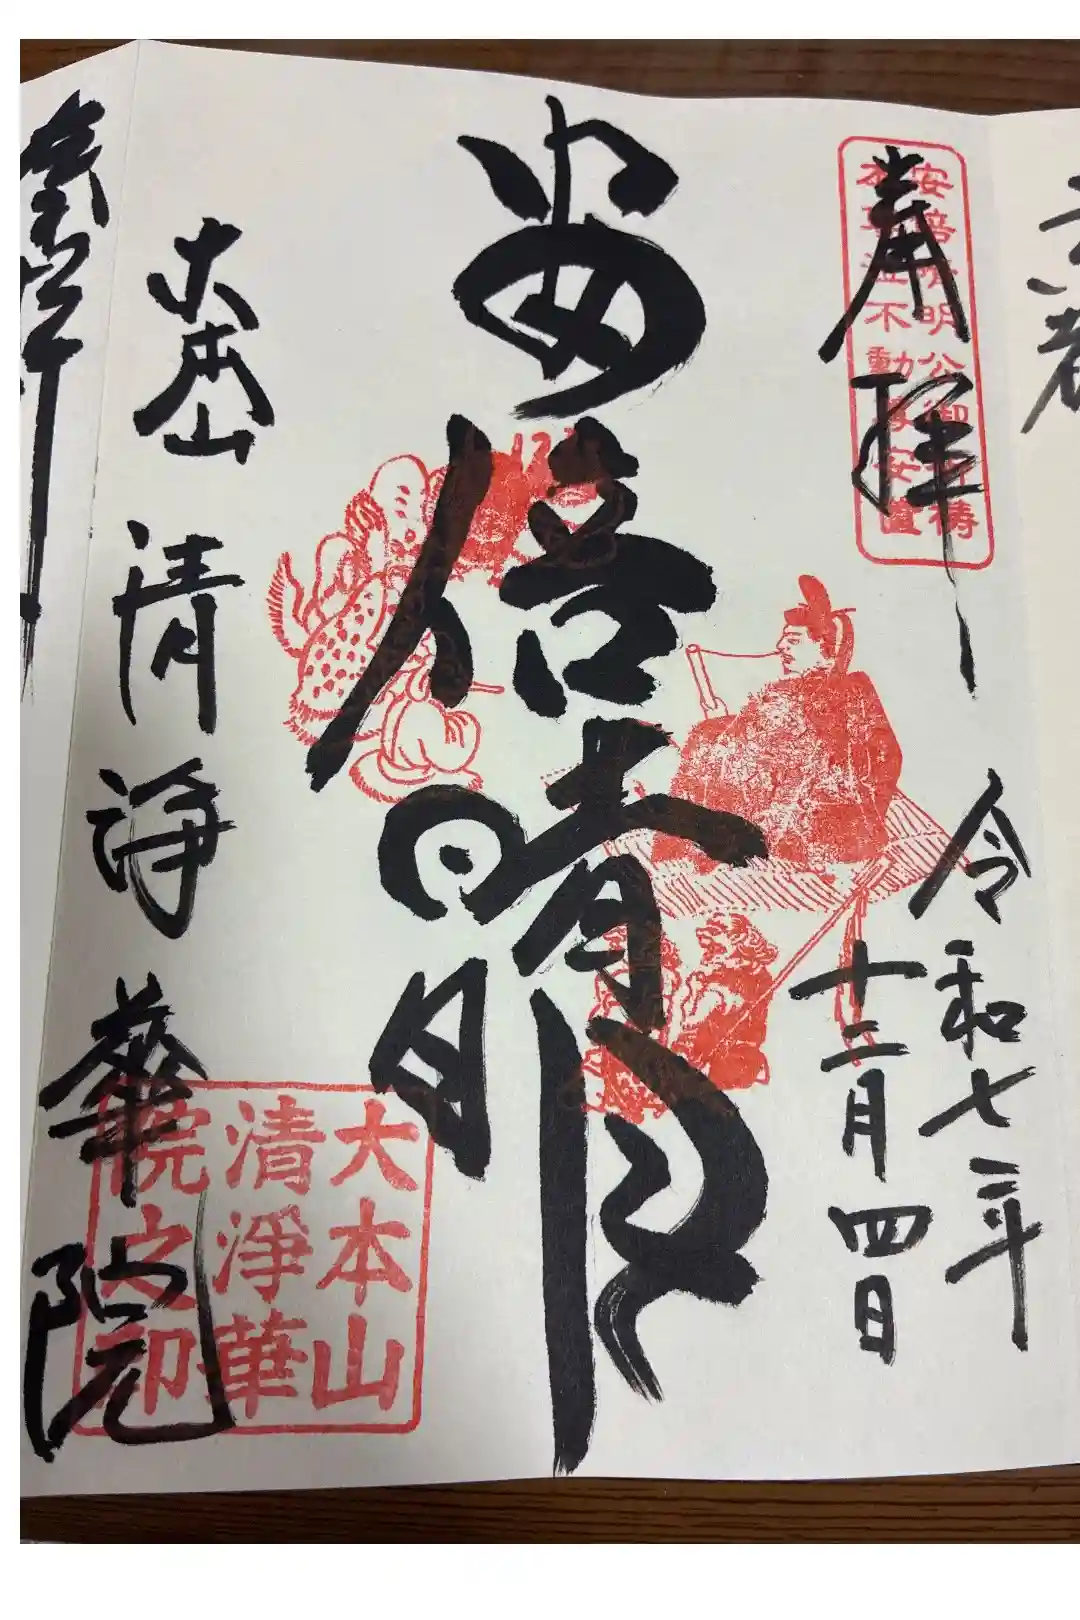 京都
奉拝
安倍晴明公御祈祷
泣不動尊安置
令和七年
十二月四日
安倍晴明
大本山 清浄華院
大本山
清浄華
院之印